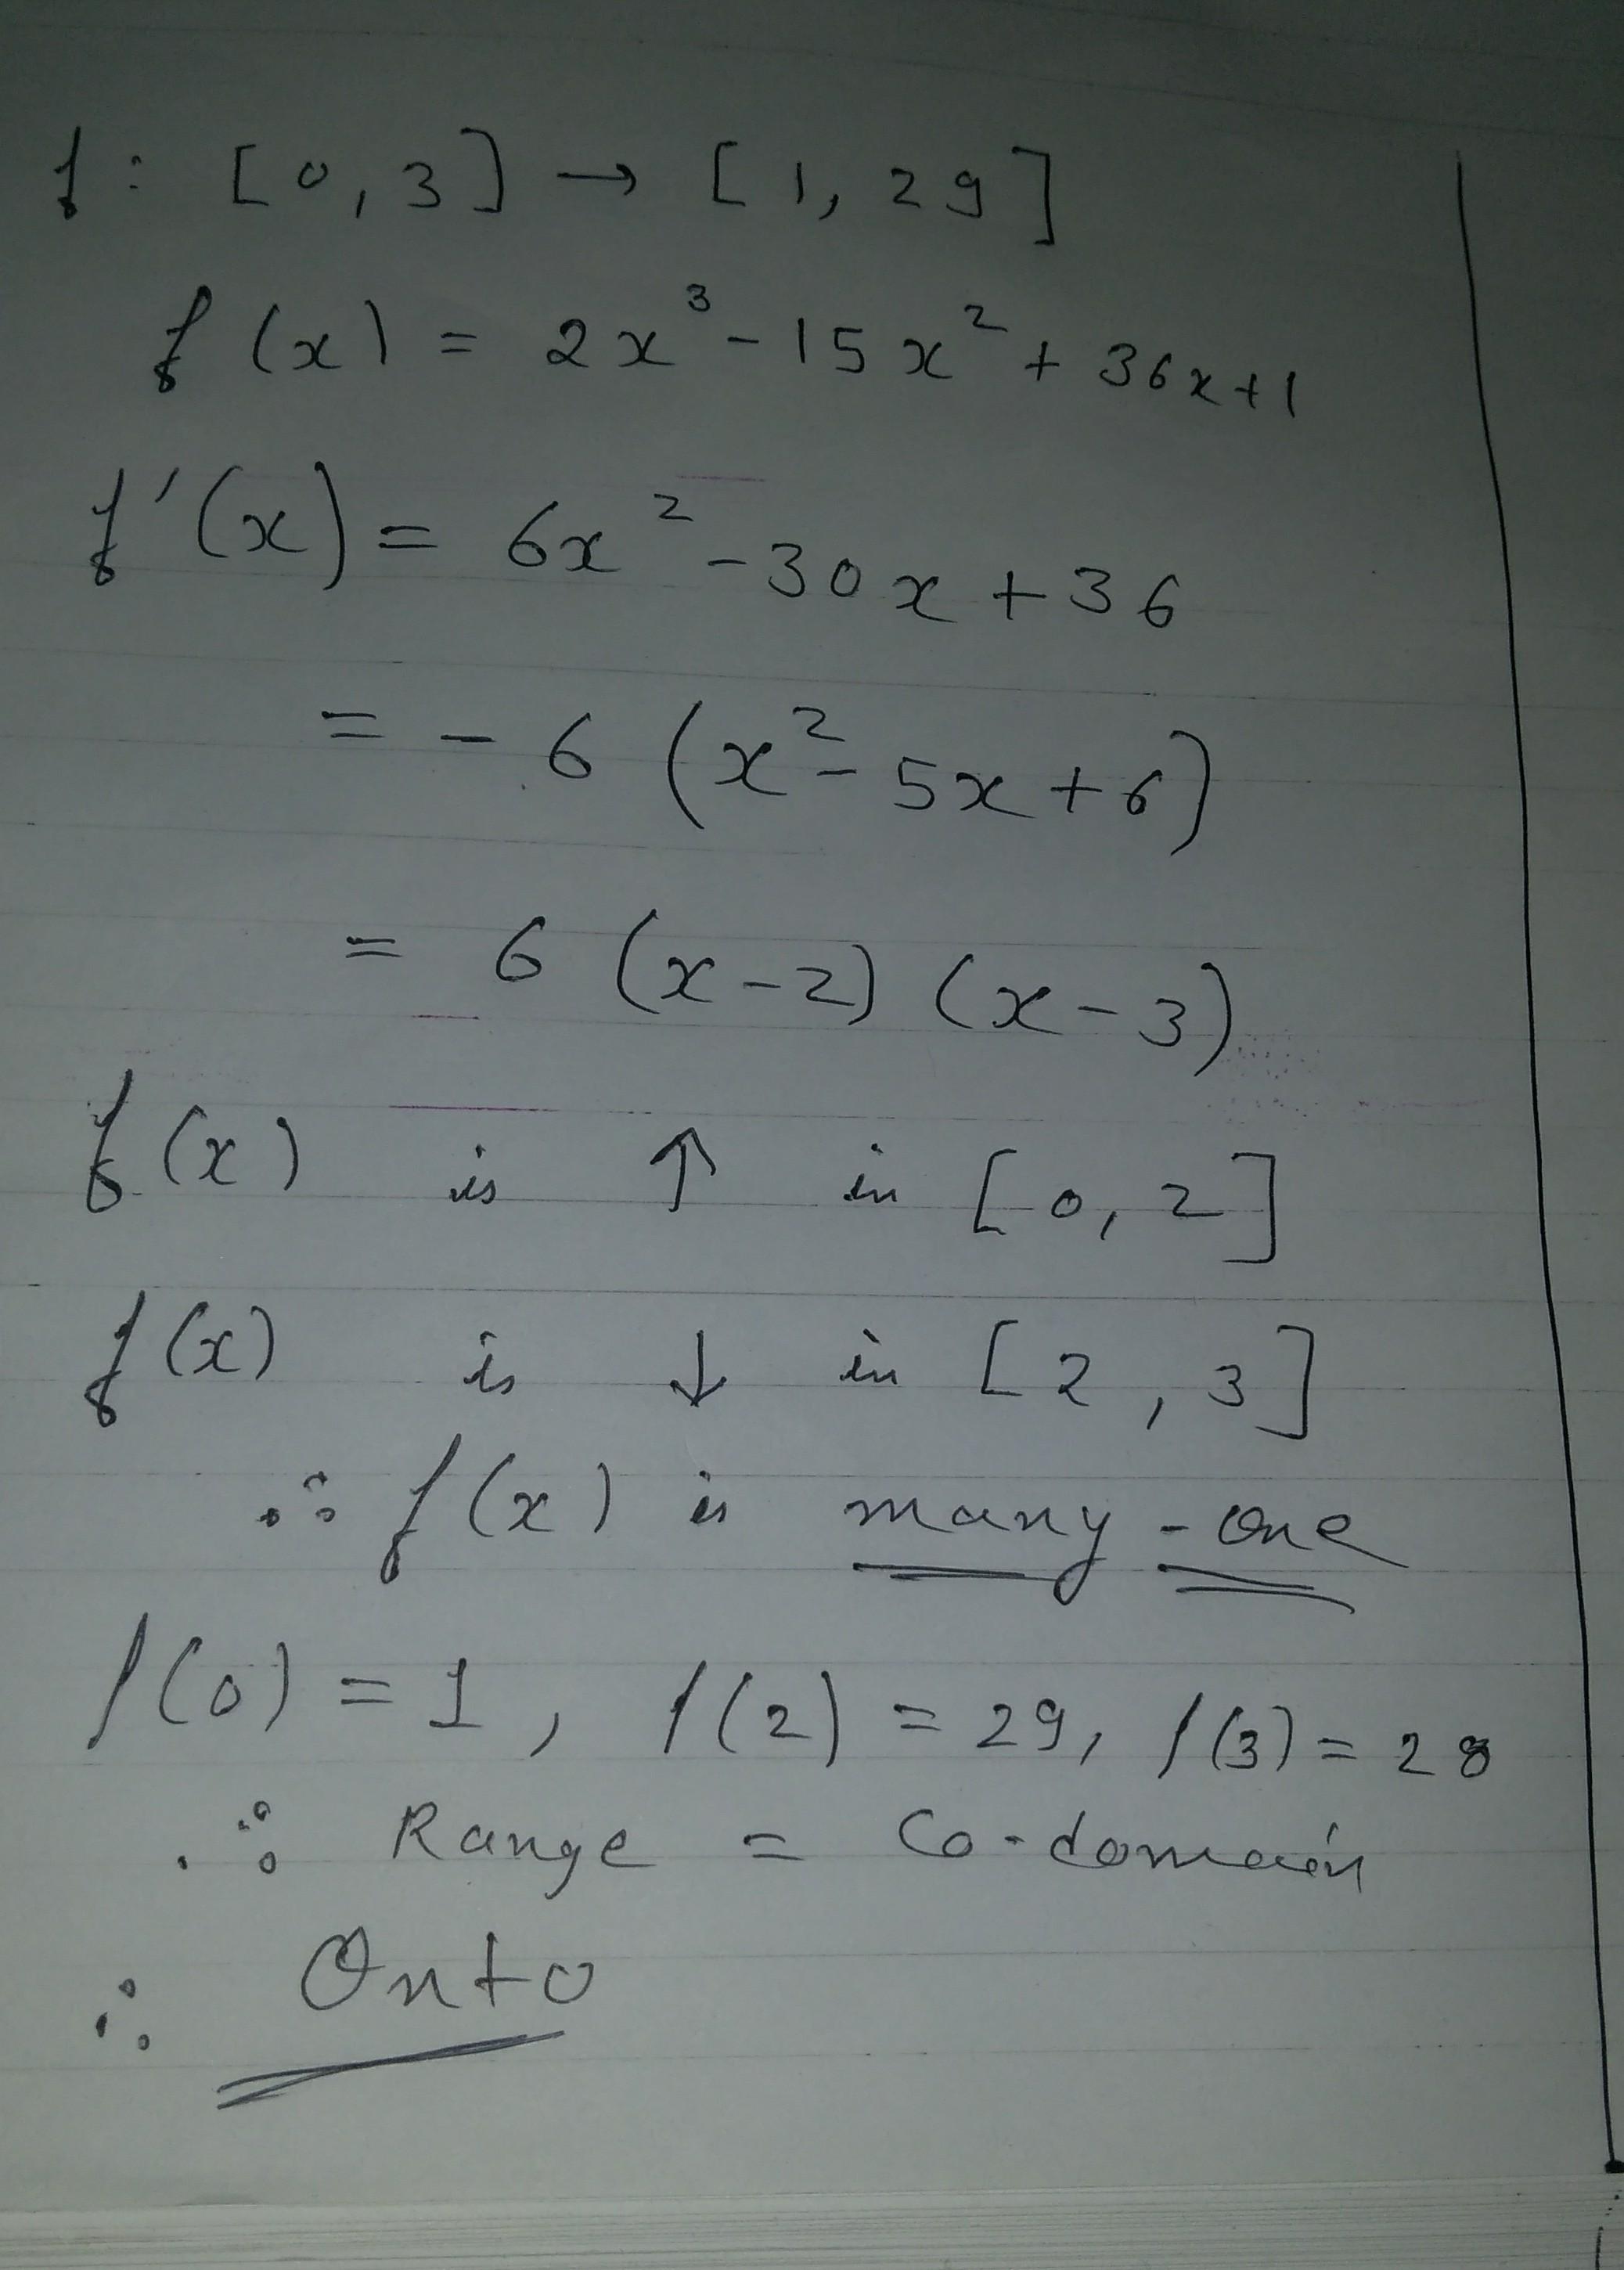 f : [0, 3] → [1, 29]
f(x) = 2x³ - 15x² + 36x + 1
f'(x) = 6x² - 30x + 36
= - 6 (x² - 5x + 6)
= 6 (x - 2) (x - 3)
f(x) is ↑ in [0, 2]
f(x) is ↓ in [2, 3]
∴ f(x) is many - one
f(0) = 1, f(2) = 29, f(3) = 28
∴ Range = Co-domain
∴ Onto